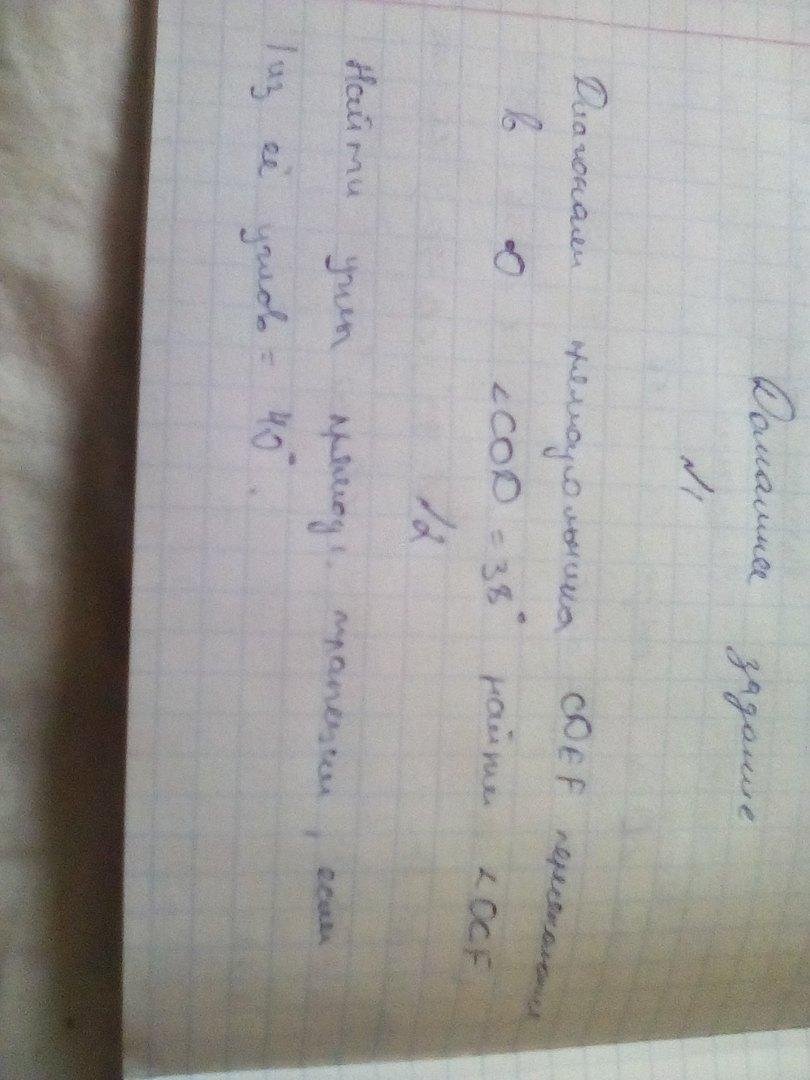 Домашнее задание
№1
Диагонали прямоугольника CDEF пересекаются
в O ∠COD = 38° найти ∠OCF
№2
Найти углы прямоуг. трапеции, если
1 из её углов = 40°.